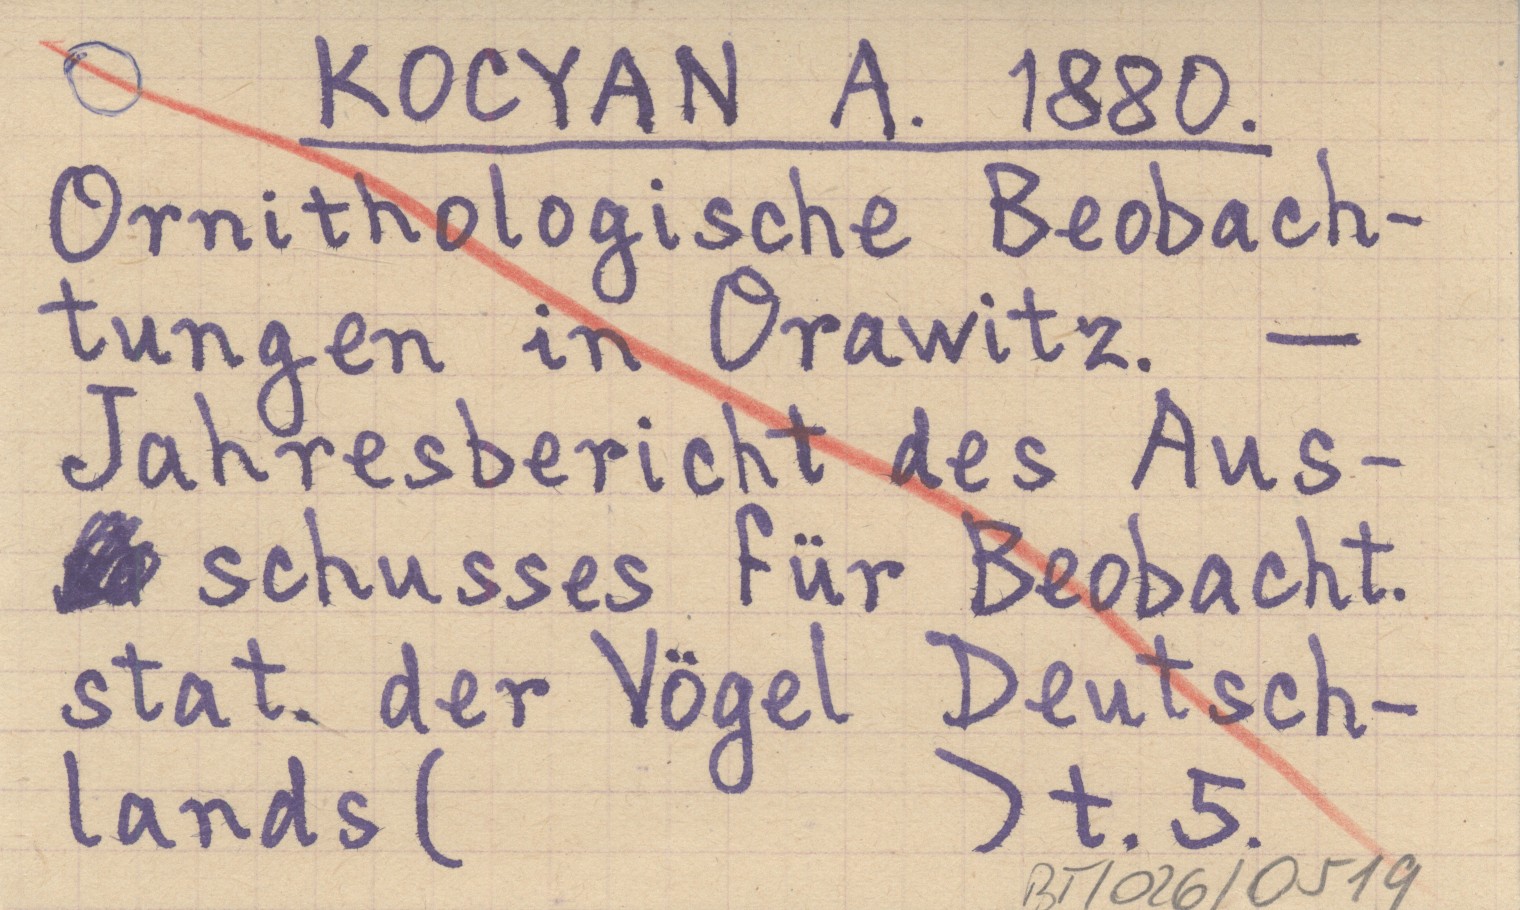 KOCYAN A. 1880.
Ornithologische Beobach-
tungen in Orawitz. —
Jahresbericht des Aus-
schusses für Beobacht.
stat. der Vögel Deutsch-
lands (                    ) t. 5.
BT/026/0519